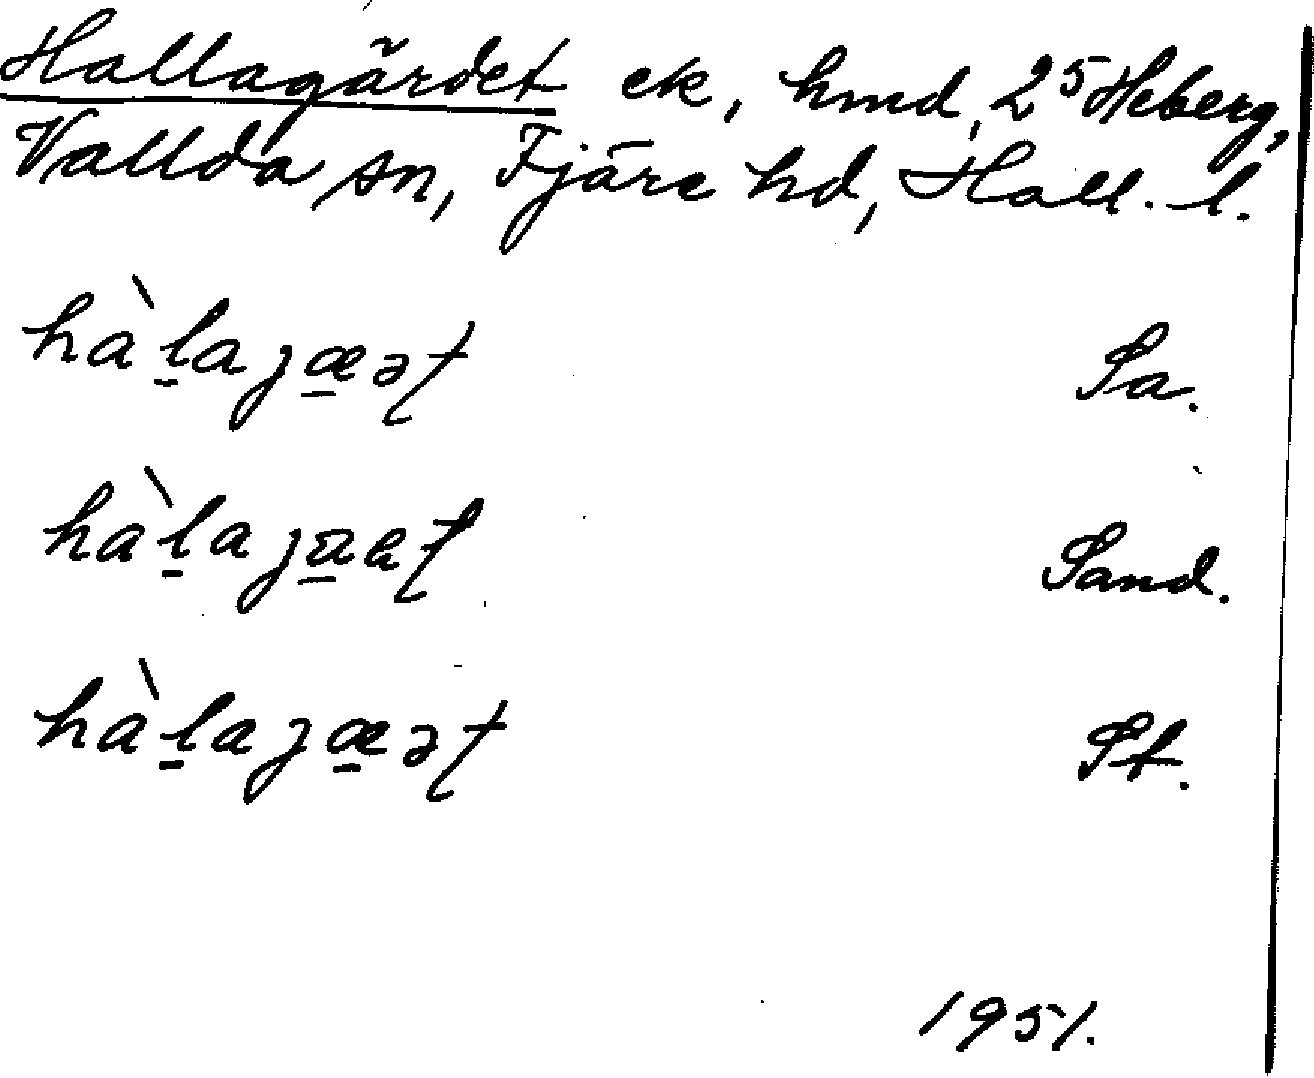 Hallagärdet ek, hmd, 2⁵ Heberg,
Vallda sn, Fjäre hd, Hall. l.
hàl̠aȷæ̠əʈ Sa.
hàl̠aȷa̠eʈ Sand.
hàl̠aȷæ̠əʈ St.
1951.